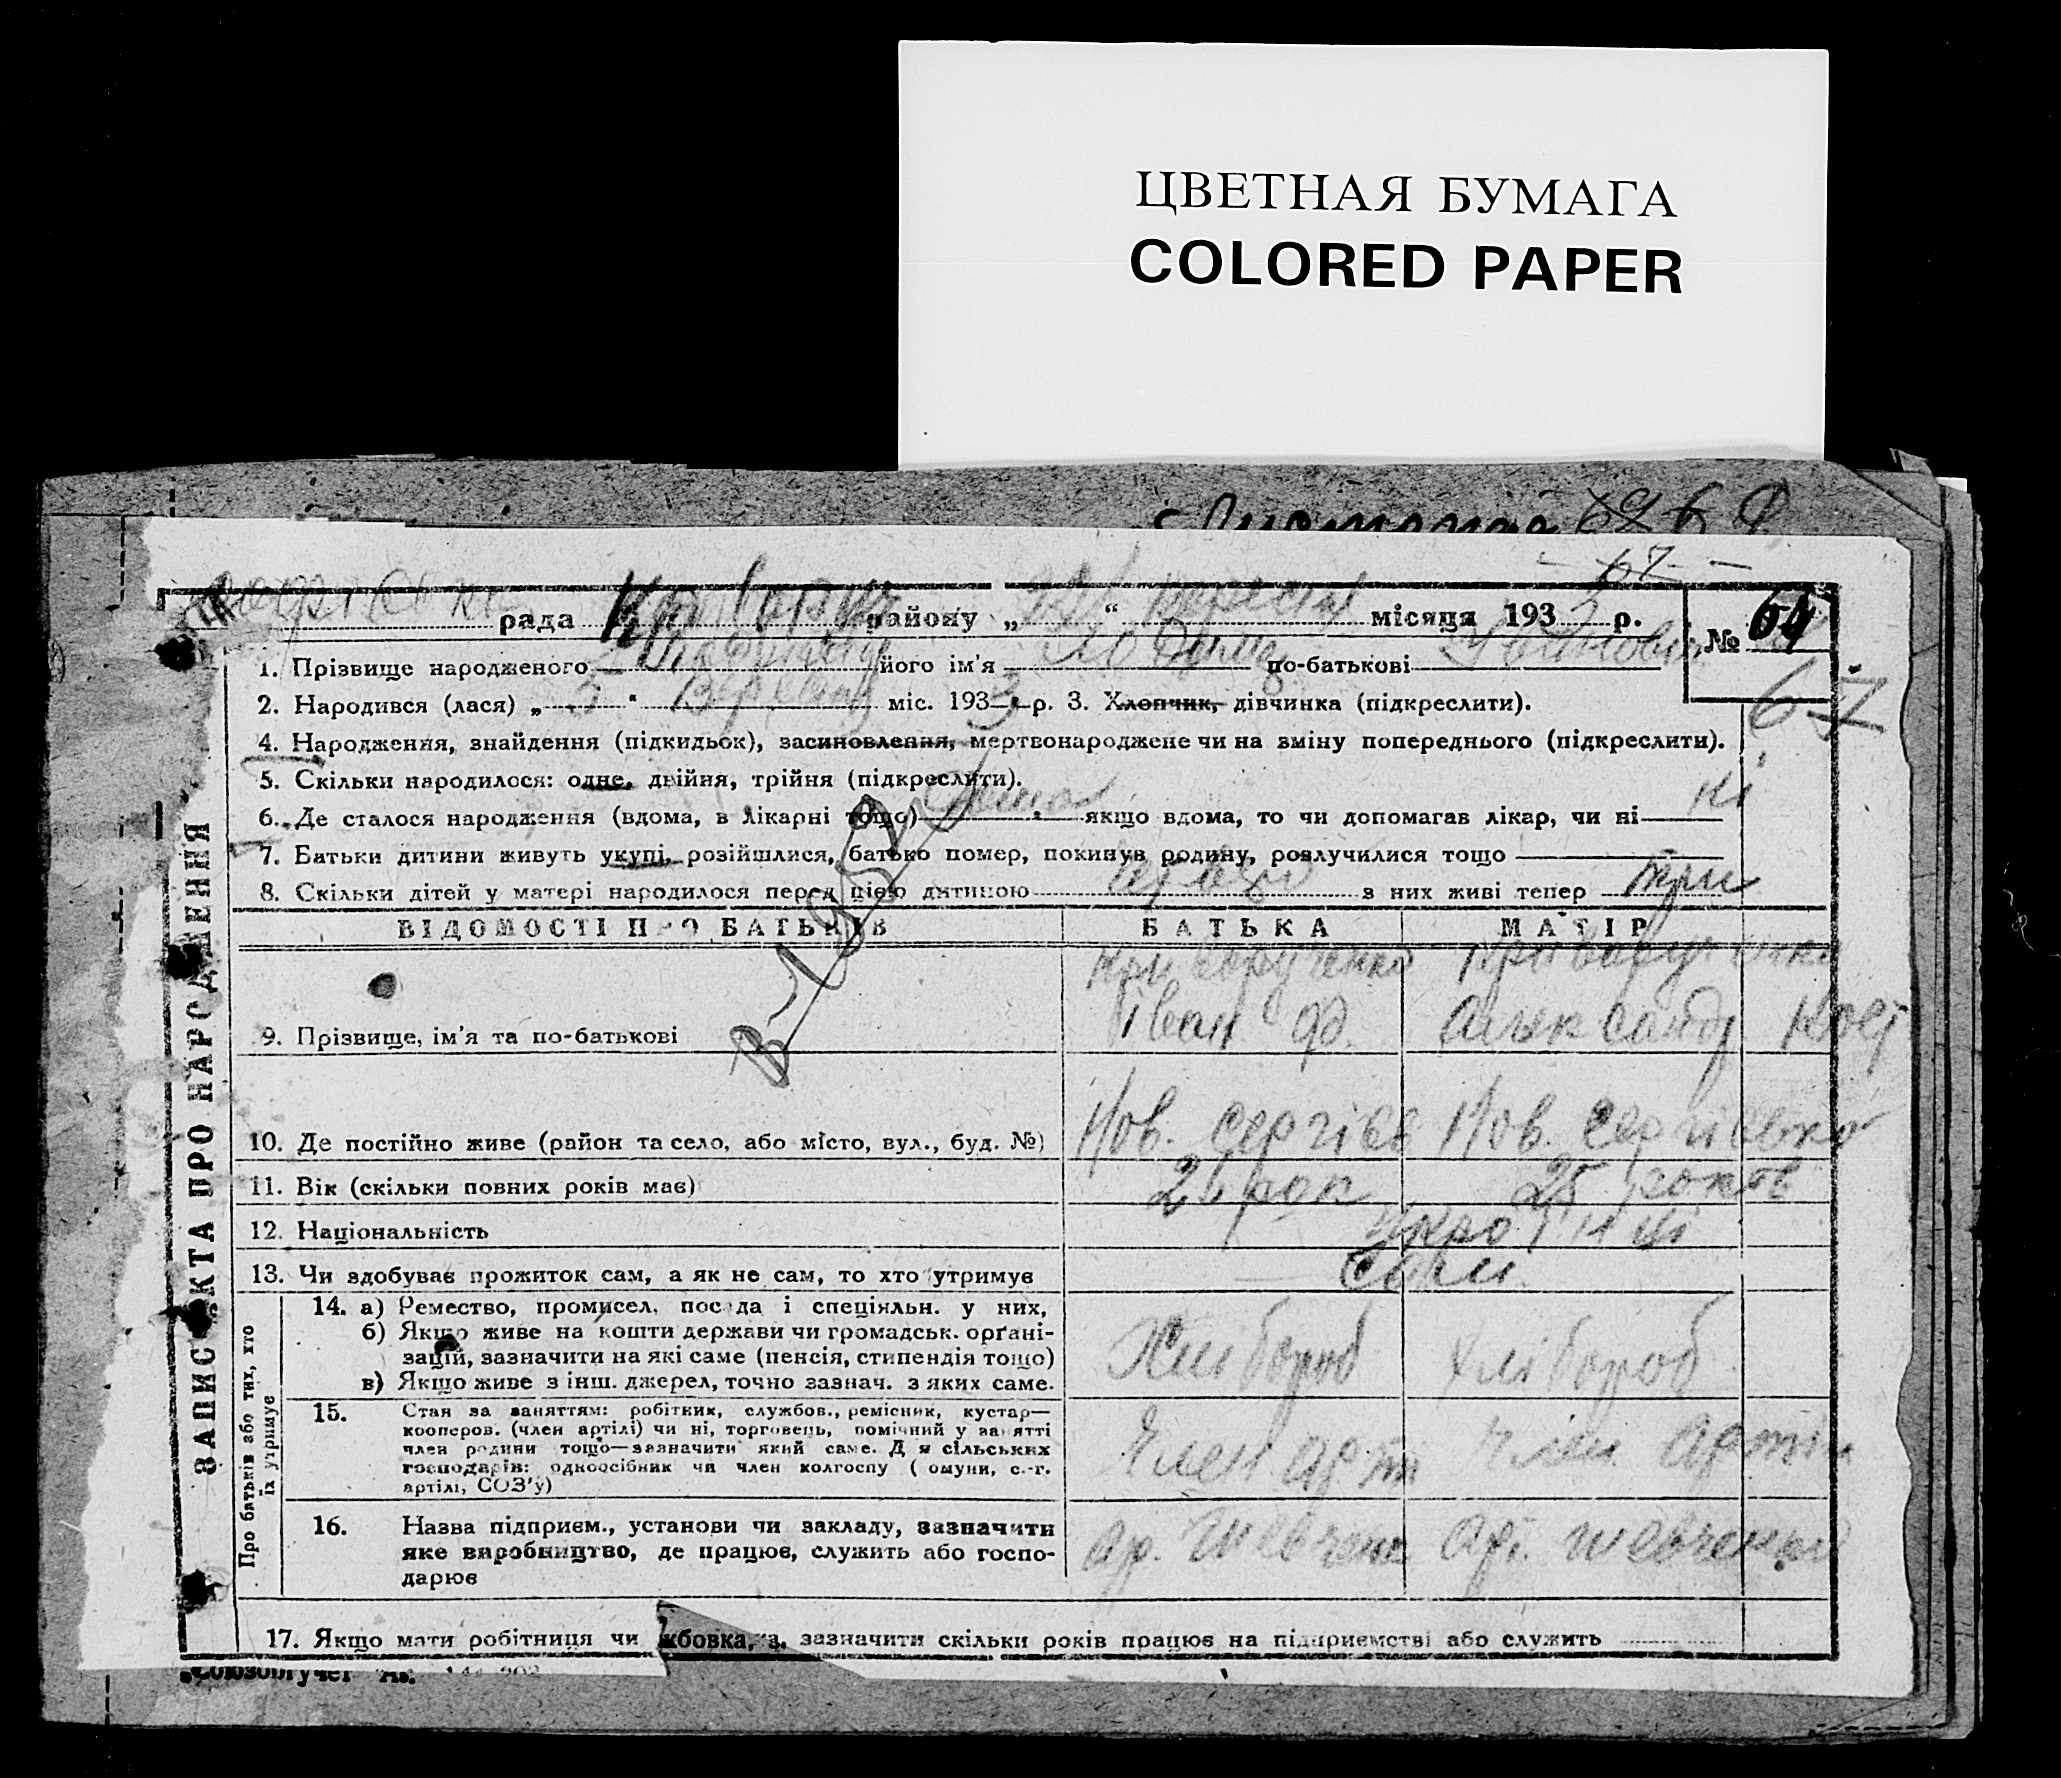 ЦВЕТНАЯ БУМАГА
COLORED PAPER
67
рада району „ 22 “ вересня місяця 1933 р.
№ 61
67
1. Прізвище народженого його ім'я по-батькові
2. Народився (лася) „ 5 " Вересня міс. 1933 р. 3. Хлопчик, дівчинка (підкреслити).
4. Народження, знайдення (підкидьок), засиновлення, мертвонароджене чи на зміну попереднього (підкреслити).
5. Скільки народилося: одне, двійня, трійня (підкреслити).
6. Де сталося народження (вдома, в лікарні тощо) якщо вдома, то чи допомагав лікар, чи ні ні
7. Батьки дитини живуть укупі, розійшлися, батько помер, покинув родину, розлучилися тощо
8. Скільки дітей у матері народилося перед цією дитиною з них живі тепер три
ВІДОМОСТІ ПРО БАТЬКІВ БАТЬКА МАТІР
9. Прізвище, ім'я та по-батькові Криворученко Іван Фд. Криворученко Александ Кост
10. Де постійно живе (район та село, або місто, вул., буд. №) Нов. Сергієв Нов. Сергієвка
11. Вік (скільки повних років має) 26 рок 25 років
12. Національність Українці
13. Чи здобуває прожиток сам, а як не сам, то хто утримує Сами
14. а) Ремество, промисел, посада і спеціяльн. у них,
б) Якщо живе на кошти держави чи громадськ. орґані-
зацій, зазначити на які саме (пенсія, стипендія тощо)
в) Якщо живе з інш. джерел, точно зазнач. з яких саме.
Хлібороб Хлібороб
15. Стан за заняттям: робітник, службов., ремісник, кустар—
кооперов. (член артілі) чи ні, торговець, помічний у занятті
член родини тощо—зазначити який саме. Для сільських
господарів: одноосібник чи член колгоспу (комуни, с.-г.
артілі, СОЗ'у)
Член арт Член артіл
16. Назва підприєм., установи чи закладу, зазначити
яке виробництво, де працює, служить або госпо-
дарює
ар. Шевченк арт. Шевченка
17. Якщо мати робітниця чи жбовка, з, зазначити скільки років працює на підприємстві або служить
ЗАПИС АКТА ПРО НАРОДЖЕННЯ
Про батьків або тих, хто
їх утримує